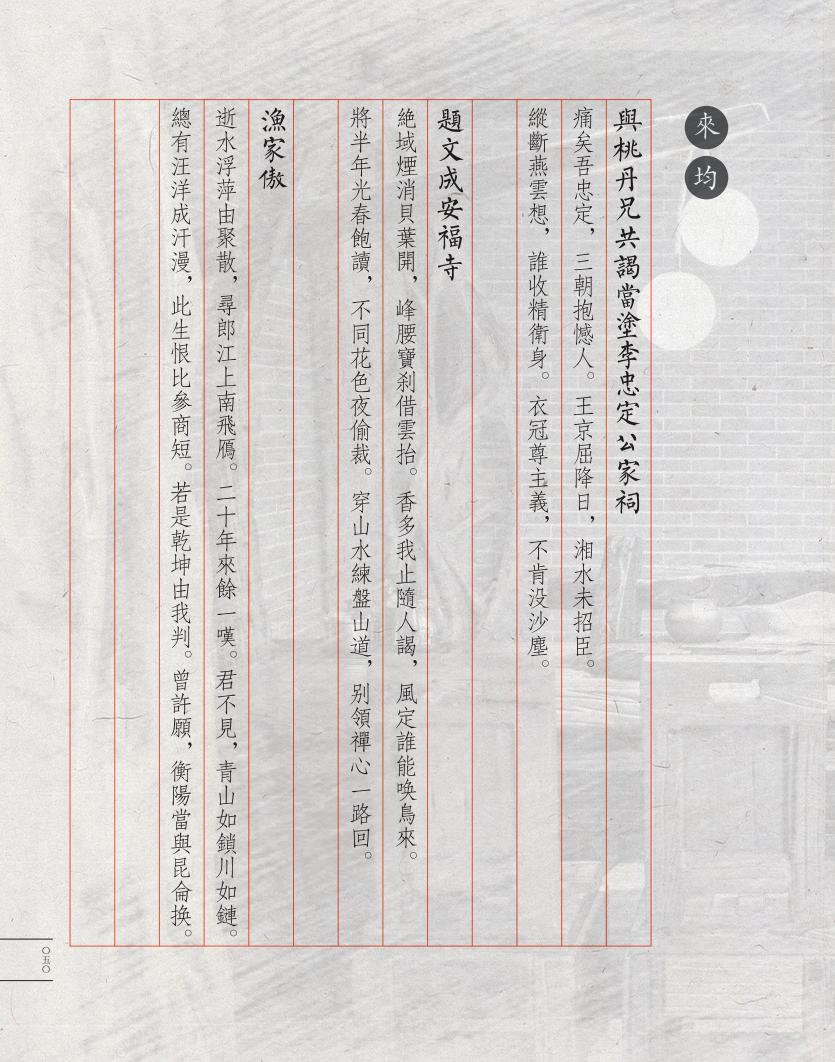 來均
與桃丹兄共謁當塗李忠定公家祠
痛矣吾忠定，三朝抱憾人。王京屈降日，湘水未招臣。
縱斷燕雲想，誰收精衛身。衣冠尊主義，不肯没沙塵。
題文成安福寺
絶域煙消貝葉開，峰腰寶刹借雲抬。香多我止隨人謁，風定誰能唤鳥來。
將半年光春飽讀，不同花色夜偷裁。穿山水練盤山道，别領禪心一路回。
漁家傲
逝水浮萍由聚散，尋郎江上南飛鴈。二十年來餘一嘆。君不見，青山如鎖川如鏈。
總有汪洋成汗漫，此生恨比參商短。若是乾坤由我判。曾許願，衡陽當與昆侖换。
〇五〇